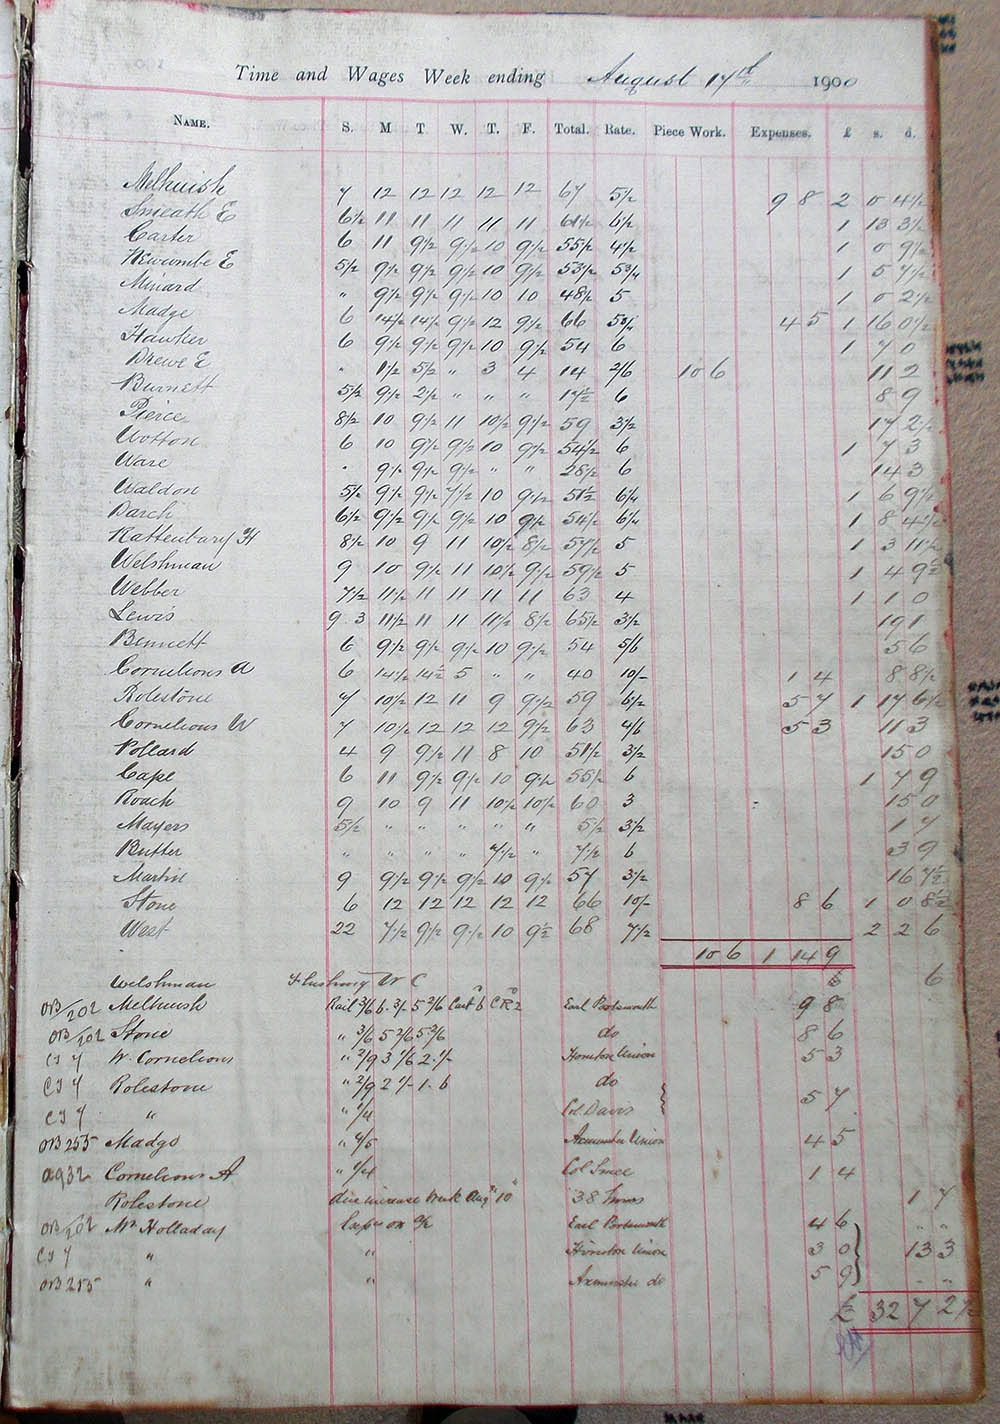 Time and Wages Week ending August 17th 1900
NAME. S. M T W. T. F. Total. Rate. Piece Work. Expenses. £ s. d.
Melhuish 7 12 12 12 12 12 67 5½ 9 8 2 0 4½
Smeath E 6½ 11 11 11 11 11 61½ 6½ 1 13 3½
Carter 6 11 9½ 9½ 10 9½ 55½ 4½ 1 0 9½
Newcombe E 5½ 9½ 9½ 9½ 10 9½ 53½ 5¾ 1 5 7½
Minard " 9½ 9½ 9½ 10 10 48½ 5 1 0 2½
Madge 6 14½ 14½ 9½ 12 9½ 66 5¾ 4 5 1 16 0½
Hawker 6 9½ 9½ 9½ 10 9½ 54 6 1 7 0
Brewe E " 1½ 5½ " 3 4 14 2/6 10 6 11 2
Burnett 5½ 9½ 2½ " " " 17½ 6 8 9
Pierce 8½ 10 9½ 11 10½ 9½ 59 3½ 17 2½
Wotton 6 10 9½ 9½ 10 9½ 54½ 6 1 7 3
Ware " 9½ 9½ 9½ " " 28½ 6 14 3
Waldon 5½ 9½ 9½ 7½ 10 9½ 51½ 6¼ 1 6 9½
Darch 6½ 9½ 9½ 9½ 10 9½ 54½ 6¼ 1 8 4½
Rattenbury H 8½ 10 9 11 10½ 8½ 57½ 5 1 3 11½
Welshman 9 10 9½ 11 10½ 9½ 59½ 5 1 4 9½
Webber 7½ 11½ 11 11 11 11 63 4 1 1 0
Lewis 9.3 11½ 11 11 11½ 8½ 65½ 3½ 19 1
Bennett 6 9½ 9½ 9½ 10 9½ 54 5/6 5 6
Cornelious A 6 14½ 14½ 5 " " 40 10/- 1 4 8 8½
Rolestone 7 10½ 12 11 9 9½ 59 6½ 5 7 1 17 6½
Cornelious W 7 10½ 12 12 12 9½ 63 4/6 5 3 11 3
Pollard 4 9 9½ 11 8 10 51½ 3½ 15 0
Cape 6 11 9½ 9½ 10 9½ 55½ 6 1 7 9
Roach 9 10 9 11 10½ 10½ 60 3 15 0
Mayers 5½ " " " " " 5½ 3½ 1 7
Butter " " " " 7½ " 7½ 6 3 9
Martin 9 9½ 9½ 9½ 10 9½ 57 3½ 16 7½
Stone 6 12 12 12 12 12 66 10/- 8 6 1 0 8½
West 22 7½ 9½ 9½ 10 9½ 68 7½ 2 2 6
10 6 1 14 9
Welshman Flushing W C 6
OB/202 Melhuish Rail 3/6 6. 3/- 5 2/6 Cart 6 Earl Portsmouth 9 8
OB/202 Stone " 3/6 5 2/6 5 2/6 do 8 6
CJ 7 W. Cornelious " 2/9 3 1/6 2. 1/- Honiton Union 5 3
CJ 7 Rolestone " 2/9 2 1/- 1. 6 do
CJ 7 " " 1/4 Col Davis } 5 7
OB 255 Madge " 4/5 Axminster Union 4 5
Cornelious A " 1/4 Col Smee 1 4
Rolestone due increase Week Augt 10" 38 hours 1 7
OB/202 Mr Holladay Exps on Earl Portsmouth 4 6 " "
CJ 7 " " Honiton Union 3 0 } 13 3
OB 255 " " Axminster do 5 9 " "
£ 32 7 2½